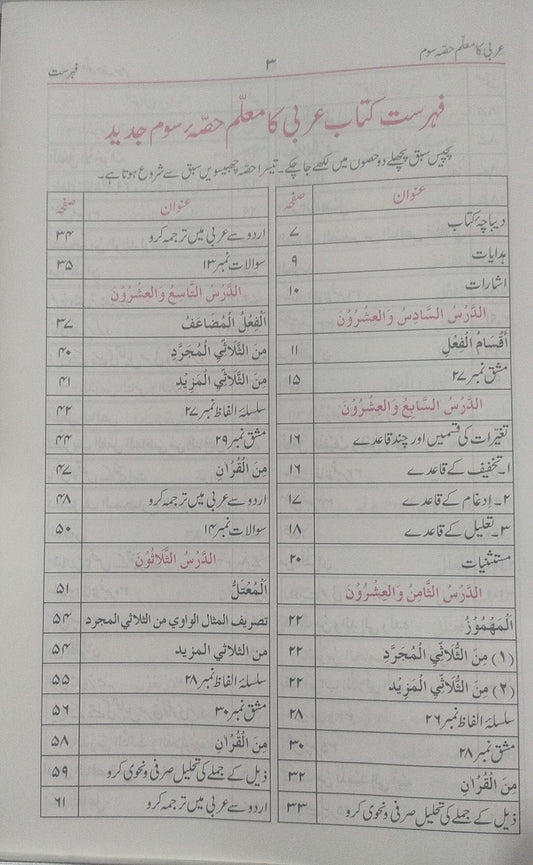 عربی کا معلّم حصّہ سوم
۳
فہرست
فہرست کتاب عربی کا معلّم حصّہ سوم جدید
پچیس سبق پچھلے دو حصوں میں لکھے جاچکے۔ تیسرا حصّہ چھبیسویں سبق سے شروع ہوتا ہے۔
عنوان صفحہ
دیباچۂ کتاب ۷
ہدایات ۹
اشارات ۱۰
الدَّرْسُ السَّادِسُ وَالْعِشْرُوْنَ
أَقْسَامُ الْفِعْلِ ۱۱
مشق نمبر ۲۷ ۱۵
الدَّرْسُ السَّابِعُ وَالْعِشْرُوْنَ
تغیّرات کی قسمیں اور چند قاعدے ۱۶
۱۔ تخفیف کے قاعدے ۱۶
۲۔ ادغام کے قاعدے ۱۷
۳۔ تعلیل کے قاعدے ۱۸
مستثنیات ۲۰
الدَّرْسُ الثَّامِنُ وَالْعِشْرُوْنَ
اَلْمَهْمُوْزُ ۲۲
(۱) مِنَ الثُّلَاثِي الْمُجَرَّدِ ۲۲
(۲) مِنَ الثُّلَاثِي الْمَزِيْدِ ۲۲
سلسلۂ الفاظ نمبر ۲۶ ۲۸
مشق نمبر ۲۸ ۳۰
مِنَ الْقُرْاٰنِ ۳۲
ذیل کے جملے کی تحلیل صرفی و نحوی کرو ۳۳
عنوان صفحہ
اردو سے عربی میں ترجمہ کرو ۳۴
سوالات نمبر ۱۳ ۳۵
الدَّرْسُ التَّاسِعُ وَالْعِشْرُوْنَ
اَلْفِعْلُ الْمُضَاعَفُ ۳۷
مِنَ الثُّلَاثِي الْمُجَرَّدِ ۴۰
مِنَ الثُّلَاثِي الْمَزِيْدِ ۴۱
سلسلۂ الفاظ نمبر ۲۷ ۴۲
مشق نمبر ۲۹ ۴۴
مِنَ الْقُرْاٰنِ ۴۷
اردو سے عربی میں ترجمہ کرو ۴۸
سوالات نمبر ۱۴ ۵۰
الدَّرْسُ الثَّلَاثُوْنَ
اَلْمُعْتَلُّ ۵۱
تصریف المثال الواوي من الثلاثي المجرد ۵۴
من الثلاثي المزيد ۵۴
سلسلۂ الفاظ نمبر ۲۸ ۵۵
مشق نمبر ۳۰ ۵۶
مِنَ الْقُرْاٰنِ ۵۸
ذیل کے جملے کی تحلیل صرفی و نحوی کرو ۵۹
اردو سے عربی میں ترجمہ کرو ۶۱